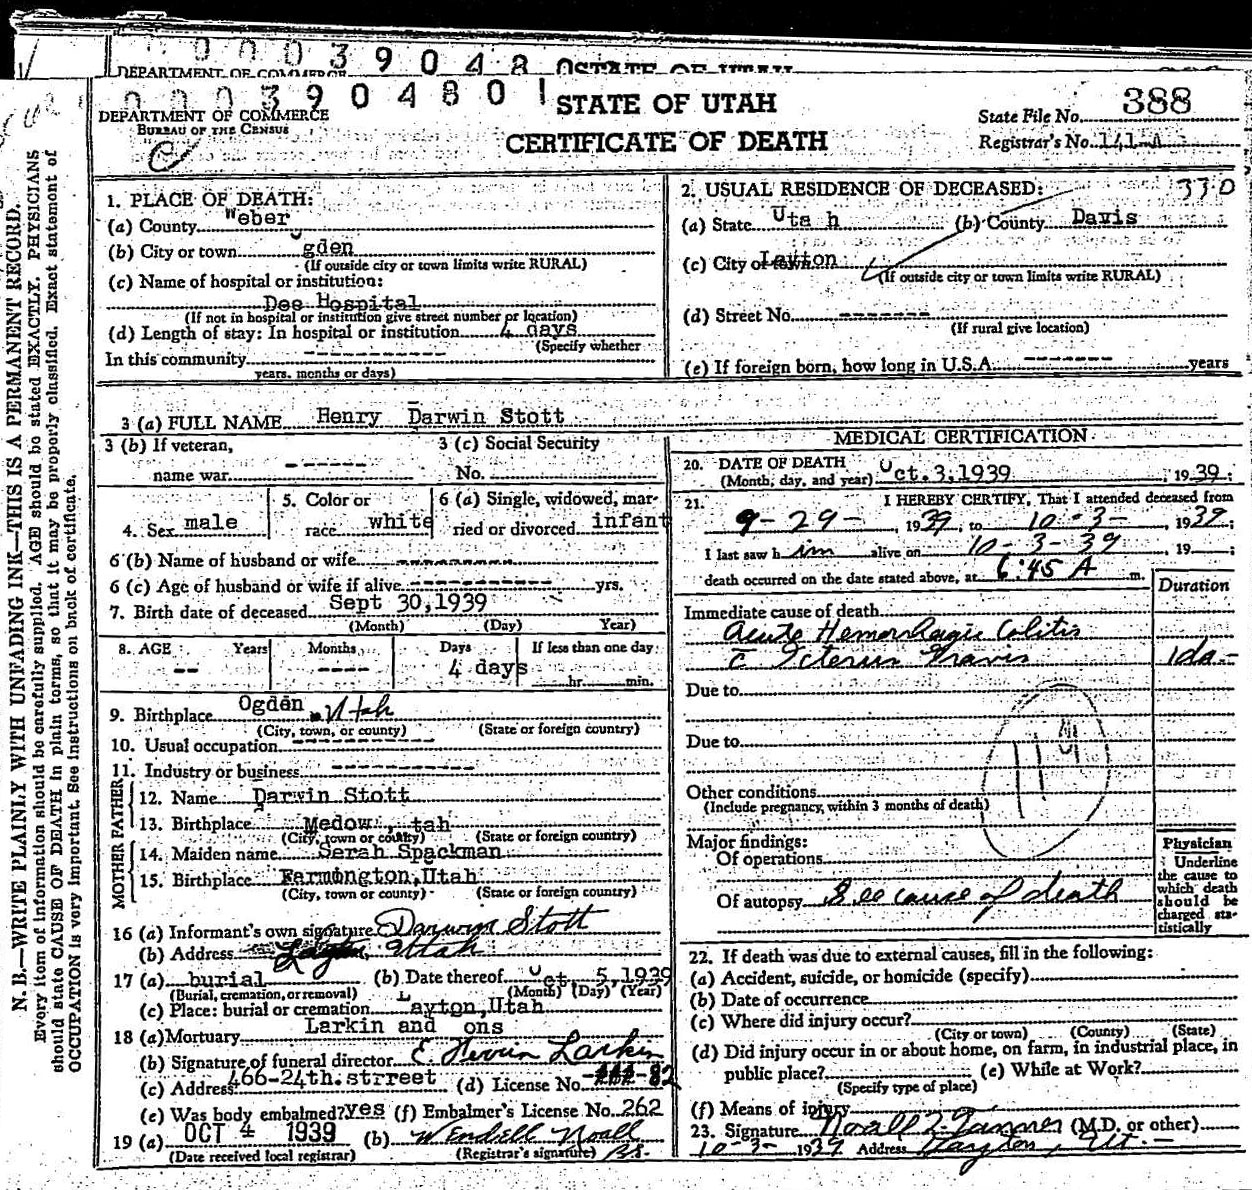 0 0 0 3 9 0 4 8 0 STATE OF UTAH
DEPARTMENT OF COMMERCE
0 0 0 3 9 0 4 8 0 1
STATE OF UTAH
CERTIFICATE OF DEATH
DEPARTMENT OF COMMERCE
BUREAU OF THE CENSUS
State File No. 388
Registrar's No. 141-A
N. B.—WRITE PLAINLY WITH UNFADING INK—THIS IS A PERMANENT RECORD.
Every item of information should be carefully supplied. AGE should be stated EXACTLY. PHYSICIANS
should state CAUSE OF DEATH in plain terms, so that it may be properly classified. Exact statement of
OCCUPATION is very important. See instructions on back of certificate.
1. PLACE OF DEATH:
(a) County Weber
(b) City or town Ogden
(If outside city or town limits write RURAL)
(c) Name of hospital or institution:
Dee Hospital
(If not in hospital or institution give street number or location)
(d) Length of stay: In hospital or institution 4 days
(Specify whether
In this community ----------
years, months or days)
2. USUAL RESIDENCE OF DECEASED: 330
(a) State Uta h (b) County Davis
(c) City or town Layton
(If outside city or town limits write RURAL)
(d) Street No. -------
(If rural give location)
(e) If foreign born, how long in U.S.A. ------- years
3 (a) FULL NAME Henry Darwin Stott
3 (b) If veteran,
name war ------
3 (c) Social Security
No.
4. Sex male
5. Color or
race white
6 (a) Single, widowed, mar-
ried or divorced infant
6 (b) Name of husband or wife ---------
6 (c) Age of husband or wife if alive ---------- yrs.
7. Birth date of deceased Sept 30,1939
(Month) (Day) Year)
8. AGE Years Months Days If less than one day
-- ---- 4 days hr. min.
9. Birthplace Ogden Utah
(City, town, or county) (State or foreign country)
10. Usual occupation ----------
11. Industry or business ----------
FATHER
12. Name Darwin Stott
13. Birthplace Medow , tah
(City, town or county) (State or foreign country)
MOTHER
14. Maiden name Serah Spackman
15. Birthplace Farmington,Utah
(City, town or county) (State or foreign country)
16 (a) Informant's own signature Darwin Stott
(b) Address Layton, Utah
17 (a) burial (b) Date thereof Oct. 5,1939
(Burial, cremation, or removal) (Month) (Day) (Year)
(c) Place: burial or cremation Layton,Utah
18 (a) Mortuary Larkin and ons
(b) Signature of funeral director E. Larkin
(c) Address 466-24th.strreet (d) License No. 82
(e) Was body embalmed? yes (f) Embalmer's License No. 262
19 (a) OCT 4 1939 (b) Wendell Noall
(Date received local registrar) (Registrar's signature)
MEDICAL CERTIFICATION
20. DATE OF DEATH
(Month, day, and year) Oct. 3,1939 , 1939;
21. I HEREBY CERTIFY, That I attended deceased from
9-29- , 1939, to 10-3- , 1939;
I last saw him alive on 10-3-39 , 19 ;
death occurred on the date stated above, at 6:45 A m.
Duration
Immediate cause of death
Acute Hemorrhagic Colitis
c Icterus Gravis 1 da.-
Due to
Due to
Other conditions
(Include pregnancy within 3 months of death)
119
Major findings:
Of operations
Of autopsy See cause of death
Physician
Underline
the cause to
which death
should be
charged sta-
tistically
22. If death was due to external causes, fill in the following:
(a) Accident, suicide, or homicide (specify)
(b) Date of occurrence
(c) Where did injury occur?
(City or town) (County) (State)
(d) Did injury occur in or about home, on farm, in industrial place, in
public place? (e) While at Work?
(Specify type of place)
(f) Means of injury
23. Signature Noall Z. Tanner (M.D. or other)
10-3- 1939 Address Layton, Ut.-